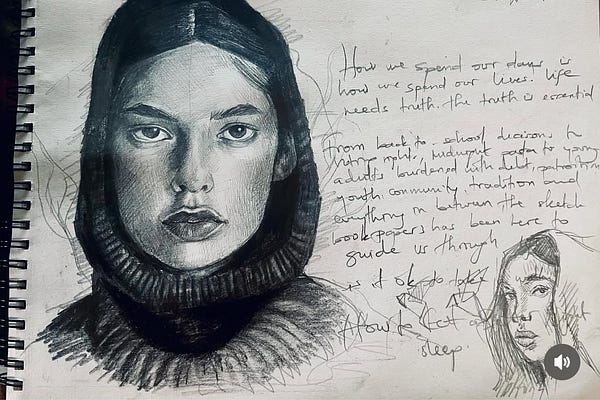 How we spend our days is
how we spend our lives. life
needs truth. the truth is essential
From back to school decisions to
voting rights, to young
adults burdened with debt, patriotism
youth community, tradition and
anything in between the sketch
book papers has been here to
guide us through
is it ok to
How to
sleep.